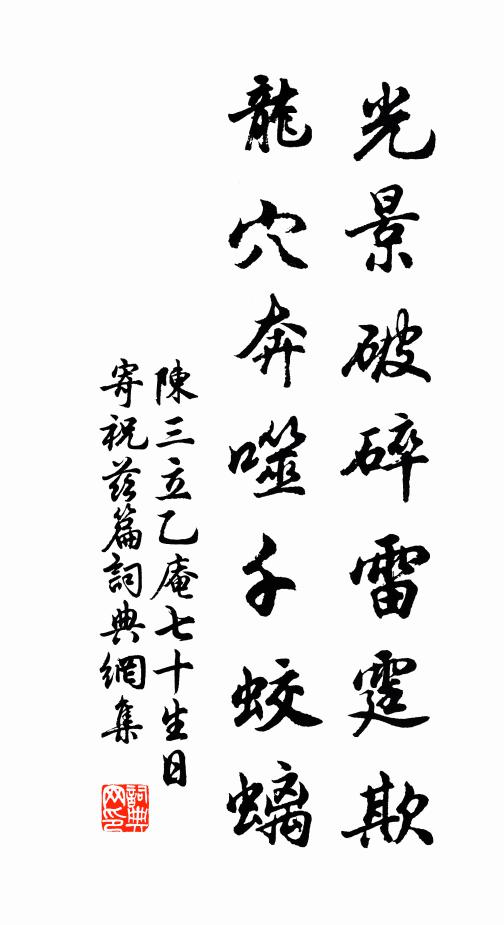 光景破碎雷霆欺
龍穴奔噬千蛟螭
陳三立乙庵七十生日
寄祝茲篇詞典網集
詞典网印